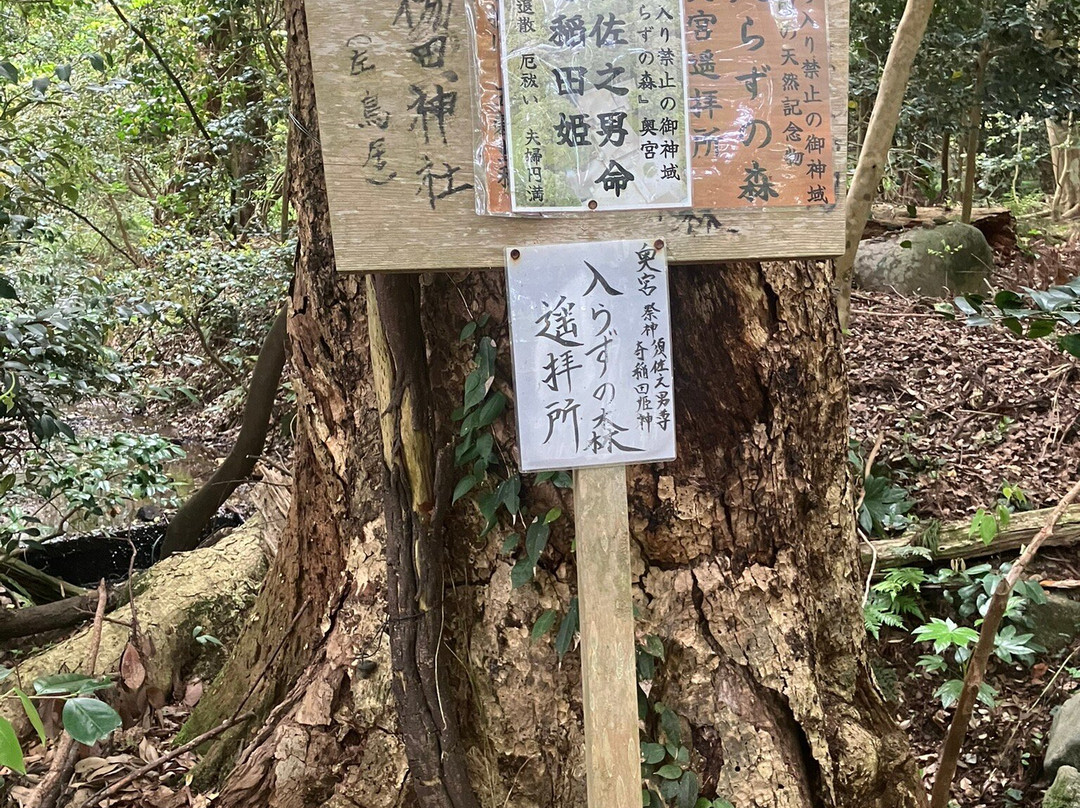 入り禁止の御神域
の天然記念物
らずの森
奥宮遥拝所
入り禁止の御神域
らずの森』奥宮
佐之男命
稲田姫
退散 厄祓い 夫婦円満
楊田神社
奥宮 祭神 須佐之男寺
奇稲田姫神
入らずの森
遥拝所